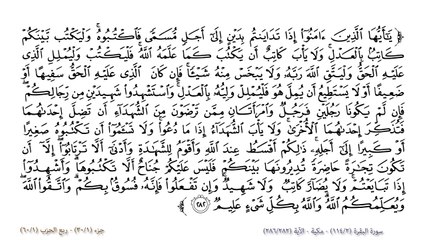 ﴿ يَٰٓأَيُّهَا ٱلَّذِينَ ءَامَنُوٓا۟ إِذَا تَدَايَنتُم بِدَيْنٍ إِلَىٰٓ أَجَلٍ مُّسَمًّى فَٱكْتُبُوهُ ۚ وَلْيَكْتُب بَّيْنَكُمْ
كَاتِبٌۢ بِٱلْعَدْلِ ۚ وَلَا يَأْبَ كَاتِبٌ أَن يَكْتُبَ كَمَا عَلَّمَهُ ٱللَّهُ ۚ فَلْيَكْتُبْ وَلْيُمْلِلِ ٱلَّذِى
عَلَيْهِ ٱلْحَقُّ وَلْيَتَّقِ ٱللَّهَ رَبَّهُۥ وَلَا يَبْخَسْ مِنْهُ شَيْـًٔا ۚ فَإِن كَانَ ٱلَّذِى عَلَيْهِ ٱلْحَقُّ سَفِيهًا أَوْ
ضَعِيفًا أَوْ لَا يَسْتَطِيعُ أَن يُمِلَّ هُوَ فَلْيُمْلِلْ وَلِيُّهُۥ بِٱلْعَدْلِ ۚ وَٱسْتَشْهِدُوا۟ شَهِيدَيْنِ مِن رِّجَالِكُمْ ۖ
فَإِن لَّمْ يَكُونَا رَجُلَيْنِ فَرَجُلٌ وَٱمْرَأَتَانِ مِمَّن تَرْضَوْنَ مِنَ ٱلشُّهَدَآءِ أَن تَضِلَّ إِحْدَىٰهُمَا
فَتُذَكِّرَ إِحْدَىٰهُمَا ٱلْأُخْرَىٰ ۚ وَلَا يَأْبَ ٱلشُّهَدَآءُ إِذَا مَا دُعُوا۟ ۚ وَلَا تَسْـَٔمُوٓا۟ أَن تَكْتُبُوهُ صَغِيرًا
أَوْ كَبِيرًا إِلَىٰٓ أَجَلِهِۦ ۚ ذَٰلِكُمْ أَقْسَطُ عِندَ ٱللَّهِ وَأَقْوَمُ لِلشَّهَٰدَةِ وَأَدْنَىٰٓ أَلَّا تَرْتَابُوٓا۟ ۖ إِلَّآ أَن
تَكُونَ تِجَٰرَةً حَاضِرَةً تُدِيرُونَهَا بَيْنَكُمْ فَلَيْسَ عَلَيْكُمْ جُنَاحٌ أَلَّا تَكْتُبُوهَا ۗ وَأَشْهِدُوٓا۟
إِذَا تَبَايَعْتُمْ ۚ وَلَا يُضَآرَّ كَاتِبٌ وَلَا شَهِيدٌ ۚ وَإِن تَفْعَلُوا۟ فَإِنَّهُۥ فُسُوقٌۢ بِكُمْ ۗ وَٱتَّقُوا۟ ٱللَّهَ ۖ
وَيُعَلِّمُكُمُ ٱللَّهُ ۗ وَٱللَّهُ بِكُلِّ شَىْءٍ عَلِيمٌ ٢٨٢ ﴾
جزء (٣٠/١) - ربع الحزب (٦٠/١) سورة البقرة (١١٤/٢) - مكية - الآية (٢٨٦/٢٨٢)